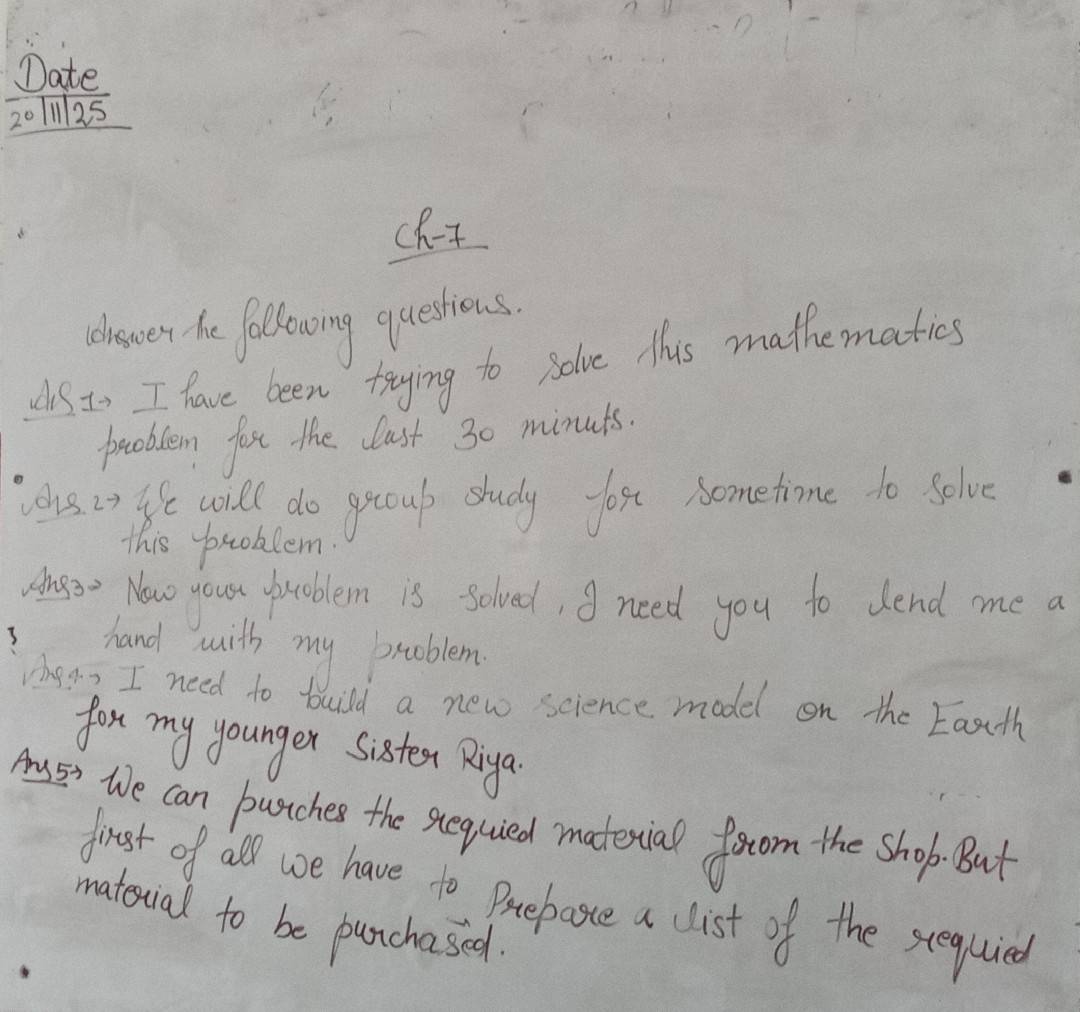 Date
20/11/25
Ch-7
Answer the following questions.
Ans 1→ I have been trying to solve this mathematics
problem for the last 30 minuts.
Ans 2→ We will do group study for sometime to solve
this problem.
Ans 3→ Now your problem is solved, I need you to lend me a
hand with my problem.
Ans 4→ I need to build a new science model on the Earth
for my younger Sister Riya.
Ans 5→ We can purches the requied material from the Shop. But
first of all we have to Prepare a list of the requied
material to be purchased.